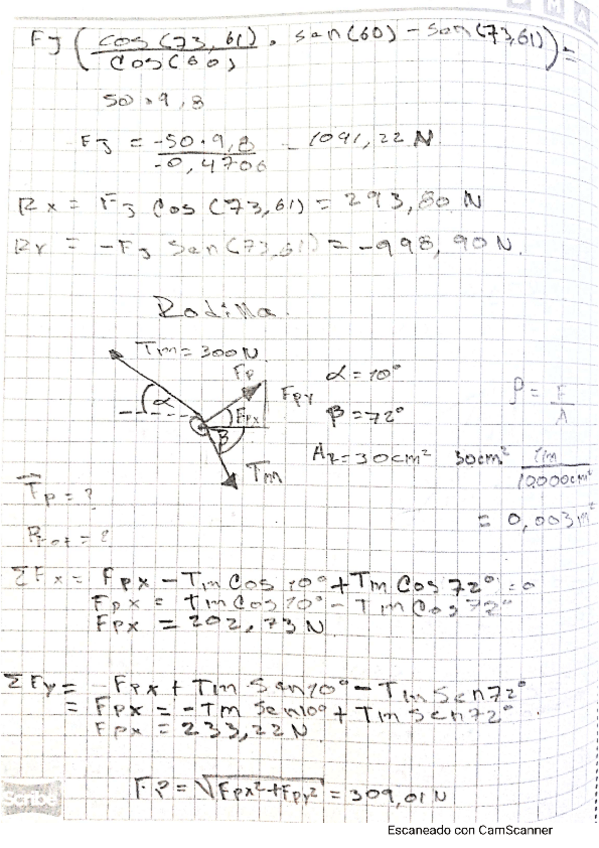 FJ (cos(73,61)/cos(60) . sen(60) - sen(73,61)) =
50.9,8
FJ = -50.9,8/-0,4706 1041,22 N
Rx = FJ cos(73,61) = 293,80 N
Ry = -FJ sen(73,61) = -998,90 N.
Rodilla.
Tm = 300 N
Fp
Fpy
Fpx
α
β
Tm
α = 10°
β = 72°
AR = 30cm²
30cm² 1m/10000cm²
= 0,003 m²
P = F/A
Fp = ?
Prot = ?
ΣFx = Fpx - Tm Cos 10° + Tm Cos 72° = 0
Fpx = Tm Cos 10° - Tm Cos 72°
Fpx = 202,73 N
ΣFy = Fpx + Tm Sen 10° - Tm Sen 72°
= Fpx = -Tm Sen 10° + Tm Sen 72°
Fpx = 233,22 N
FP = √Fpx² + Fpy² = 309,01 N
Scribe
Escaneado con CamScanner